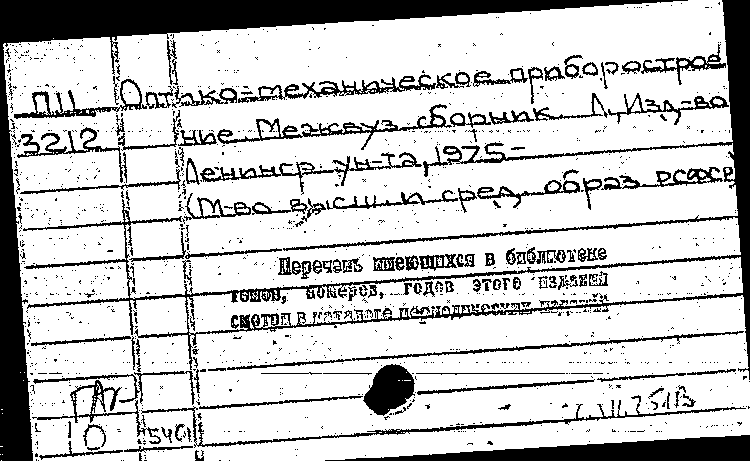 П11 Оптико-механическое приборострое
3212 ние. Межвуз. сборник. Л., Изд-во
Ленингр. ун-та, 1975-
(М-во высш. и сред. образ. РСФСР
Перечень имеющихся в библиотеке
томов, номеров, годов этого издания
смотри в каталоге периодических изданий
10 5401